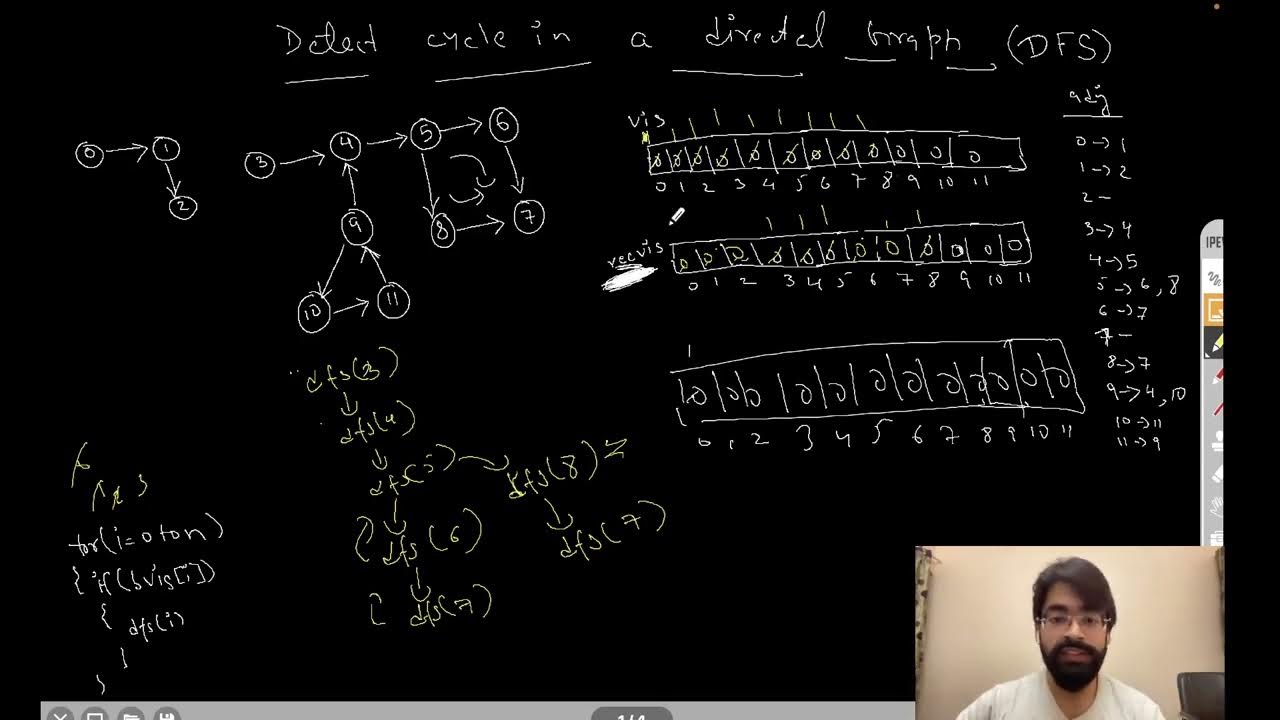 Detect cycle in a directed Graph (DFS)
0 1 2
3 4 5 6
9 8 7
10 11
vis
0 0 0 0 0 0 0 0 0 0 0 0
0 1 2 3 4 5 6 7 8 9 10 11
recvis
0 0 0 0 0 0 0 0 0 0 0 0
0 1 2 3 4 5 6 7 8 9 10 11
1
0 0 0 0 0 0 0 0 0 0 0 0
0 1 2 3 4 5 6 7 8 9 10 11
adj
0 → 1
1 → 2
2 –
3 → 4
4 → 5
5 → 6, 8
6 → 7
7 –
8 → 7
9 → 4, 10
10 → 11
11 → 9
dfs(3)
dfs(4)
dfs(5)
dfs(8)
dfs(6)
dfs(7)
dfs(7)
for(i=0 to n)
{ if(!vis[i])
{
dfs(i)
}
}
1/4
IPE